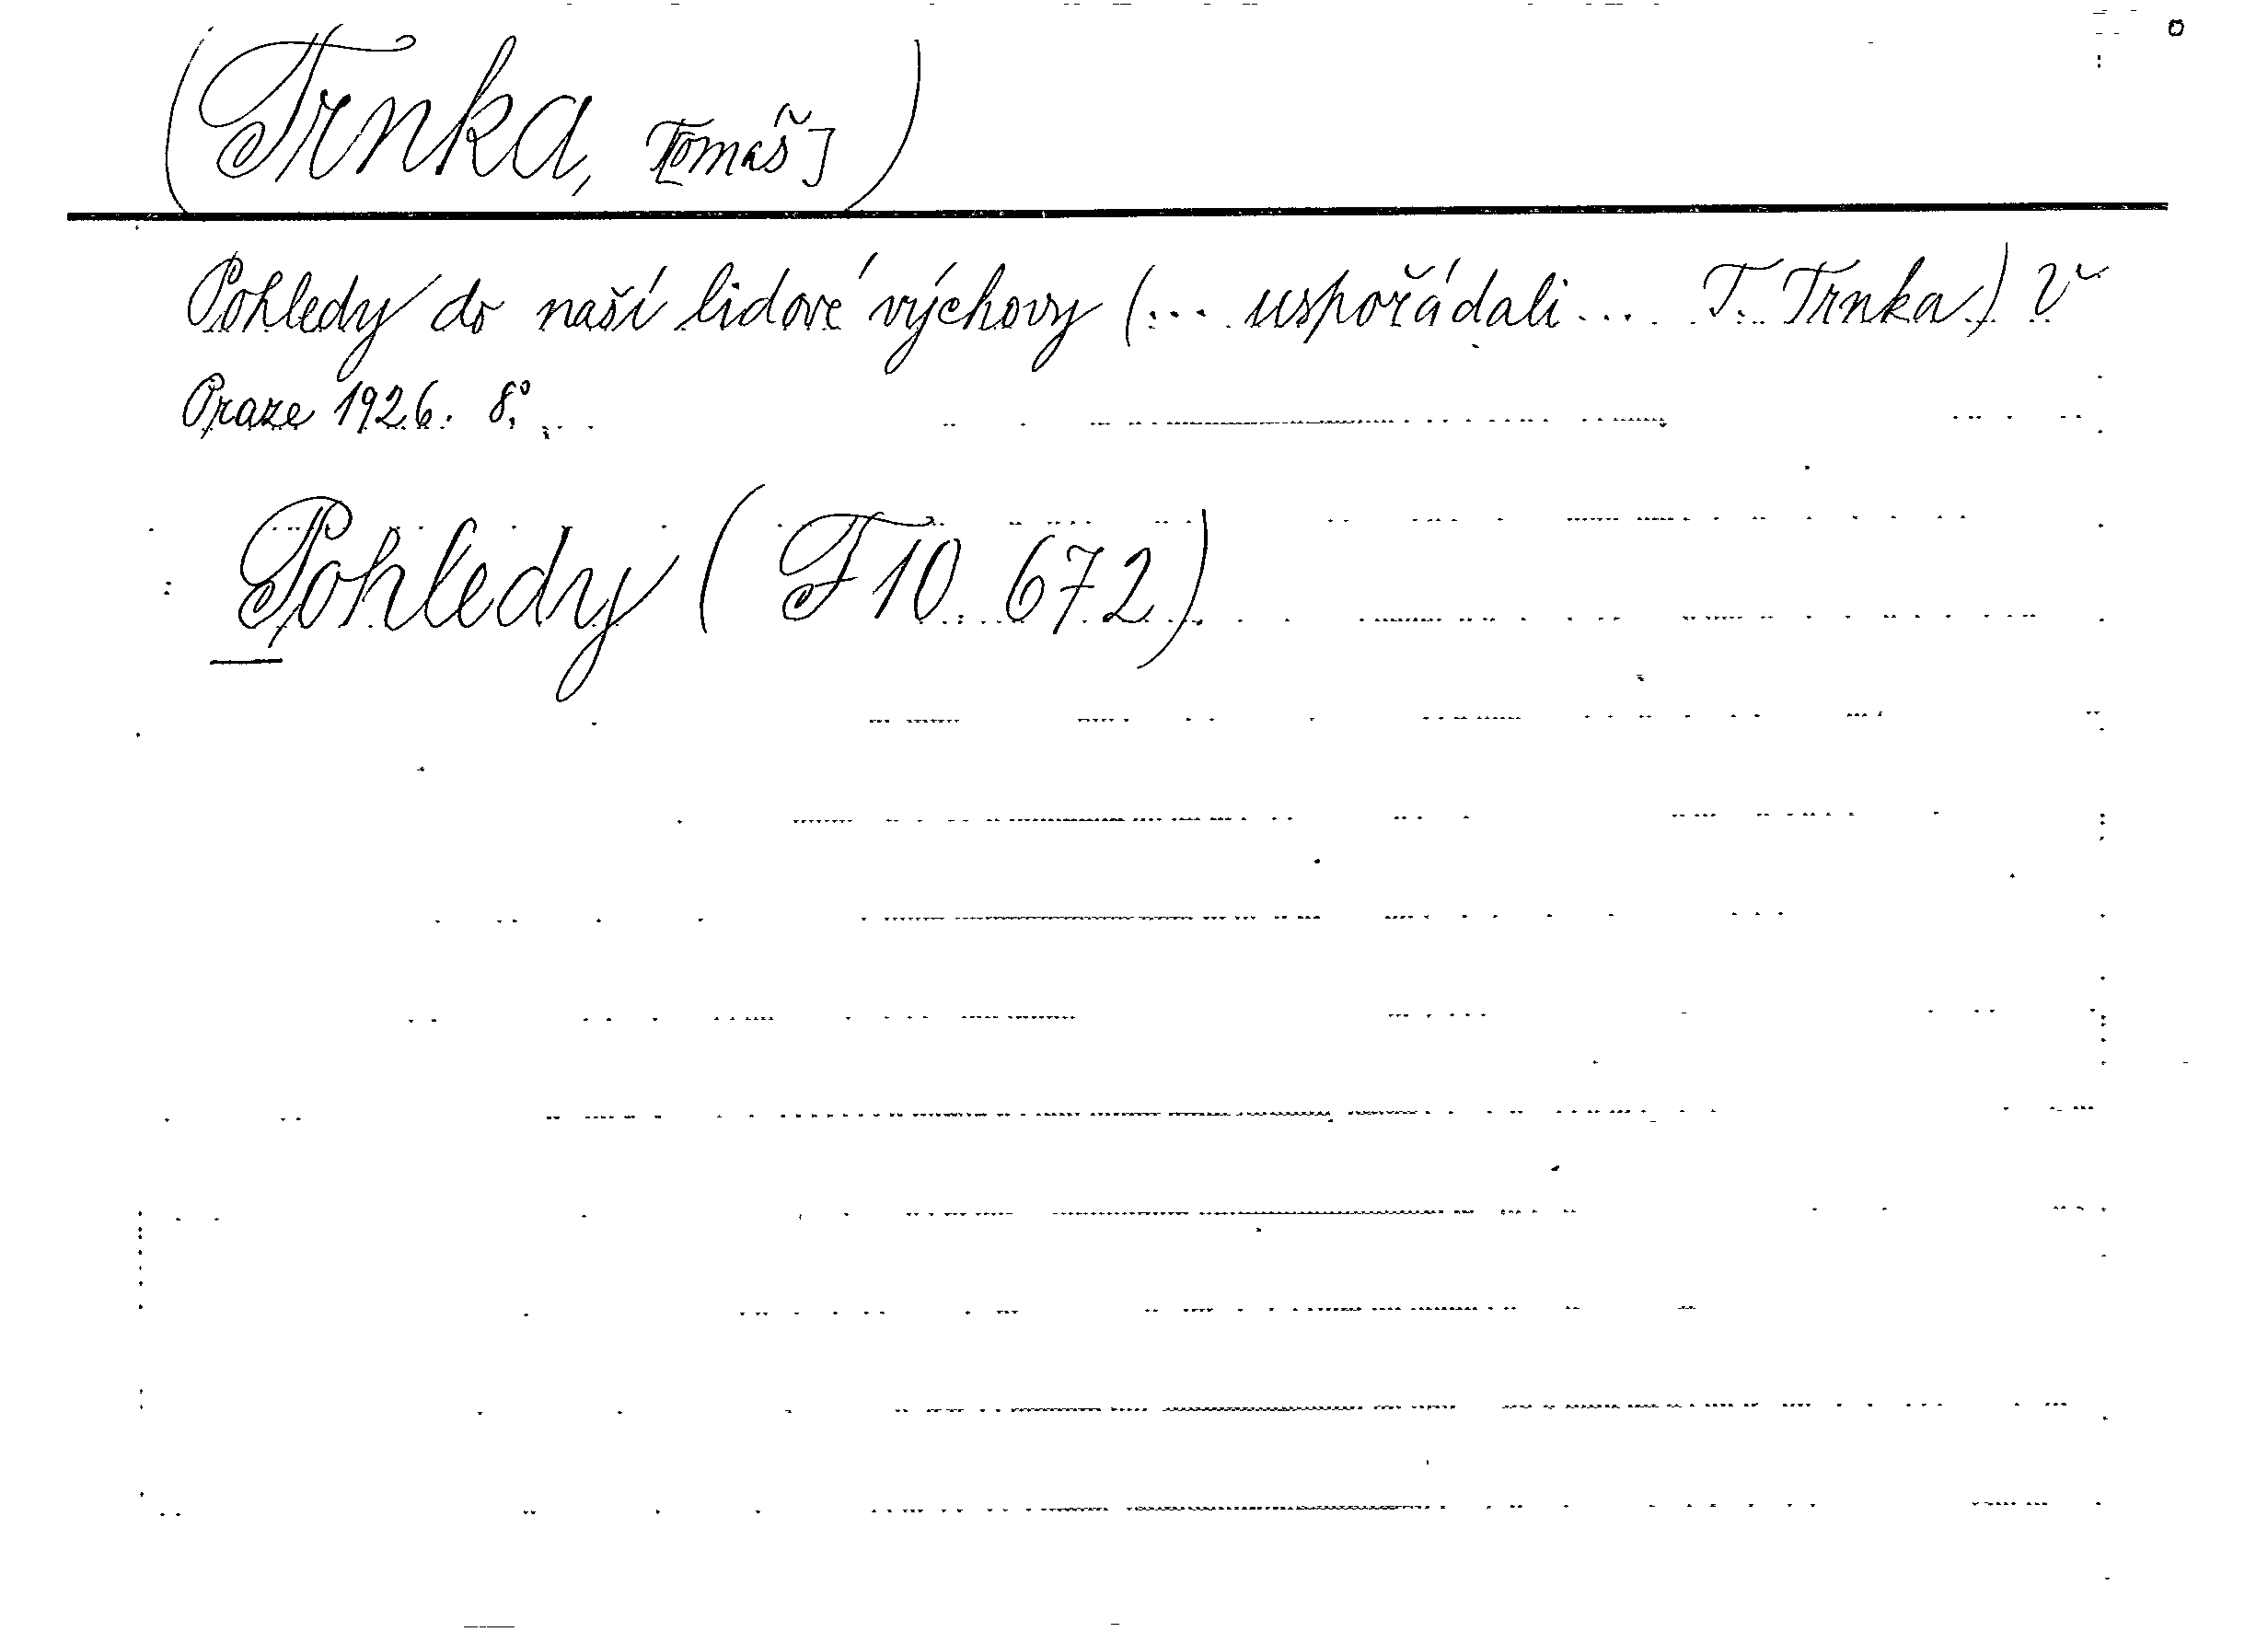 (Trnka, T[omáš])
Pohledy do naší lidové výchovy (... uspořádali ... T. Trnka) V
Praze 1926. 8°.
Pohledy (F 10 672)